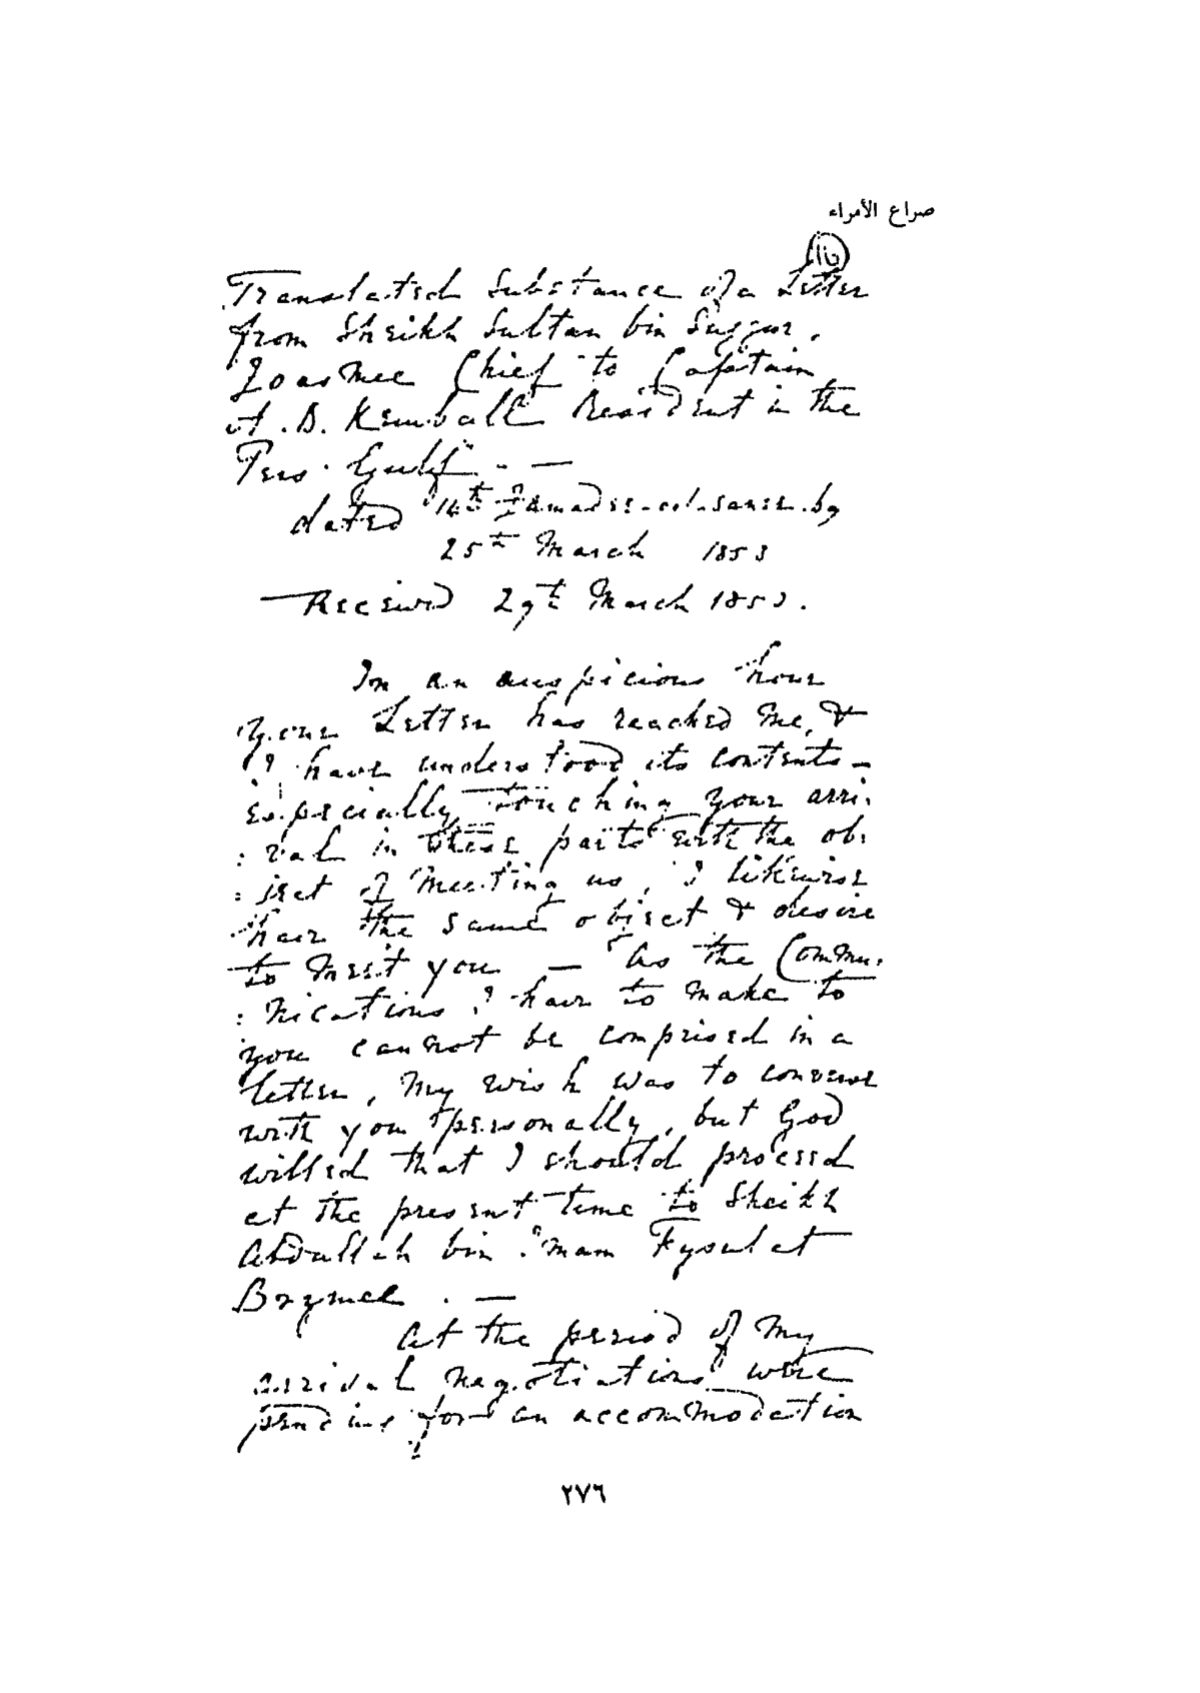 صراع الأمراء
Translated Substance of a Letter
from Sheikh Sultan bin Suggur.
Joasmee Chief to Captain
A. B. Kemball Resident in the
Pers. Gulf. —
dated 14th Jamadee-ool-
25th March 1853
Received 29th March 1853.
In an auspicious hour
your Letter has reached me, &
I have understood its contents —
especially touching your arri
: val in these parts with the ob:
: ject of meeting us, I likewise
have the same object & desire
to meet you — As the Commu:
: nications I have to make to
you cannot be comprised in a
letter, my wish was to converse
with you personally, but God
willed that I should proceed
at the present time to Sheikh
Abdullah bin Imam Fysul at
Brymee. —
At the period of my
arrival negotiations were
pending for an accommodation
٢٧٦